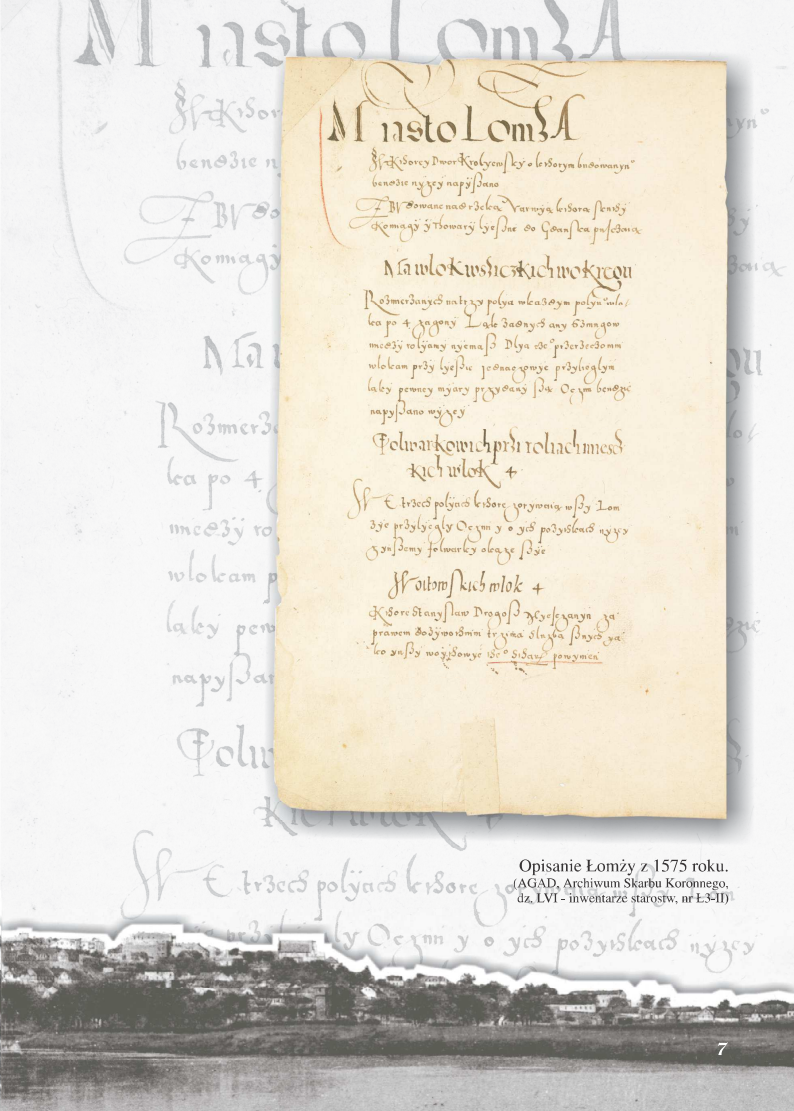 Miasto Lomza
W Kthorey Dwor Krolyewsky o kthorym budowanyu
bendzie nyzey napyssano
Zbudowane nad rzeka Narwya kthora
Komiagy y Thowary do Gdanska
Ma wlok wssiczkich wokregu
Rozmierzanych na trzy polya w kazdym polyu wlo
ka po 4 zagony Lak zadnych any
miedzy rolyamy nyemass Dlya
wlokam przy lyessie
laky pewney myary przydany sa O czim bendzie
napyssano wyzey
Folwarkowich pri roliach miesz
kich wlok 4
W trzech polyach kthore zorywaia wssy Lom
zye przylyegly O czim y o ych pozythkach nyzey
folwarky okaze
Woitowskich wlok 4
Kthore Stanyslaw Drogoss Myesczanyn za
prawem dozywothnim trzima sluzba s nych ya
ko ynssy woythowye powymen
Opisanie Łomży z 1575 roku.
(AGAD, Archiwum Skarbu Koronnego,
dz. LVI - inwentarze starostw, nr Ł3-II)
7